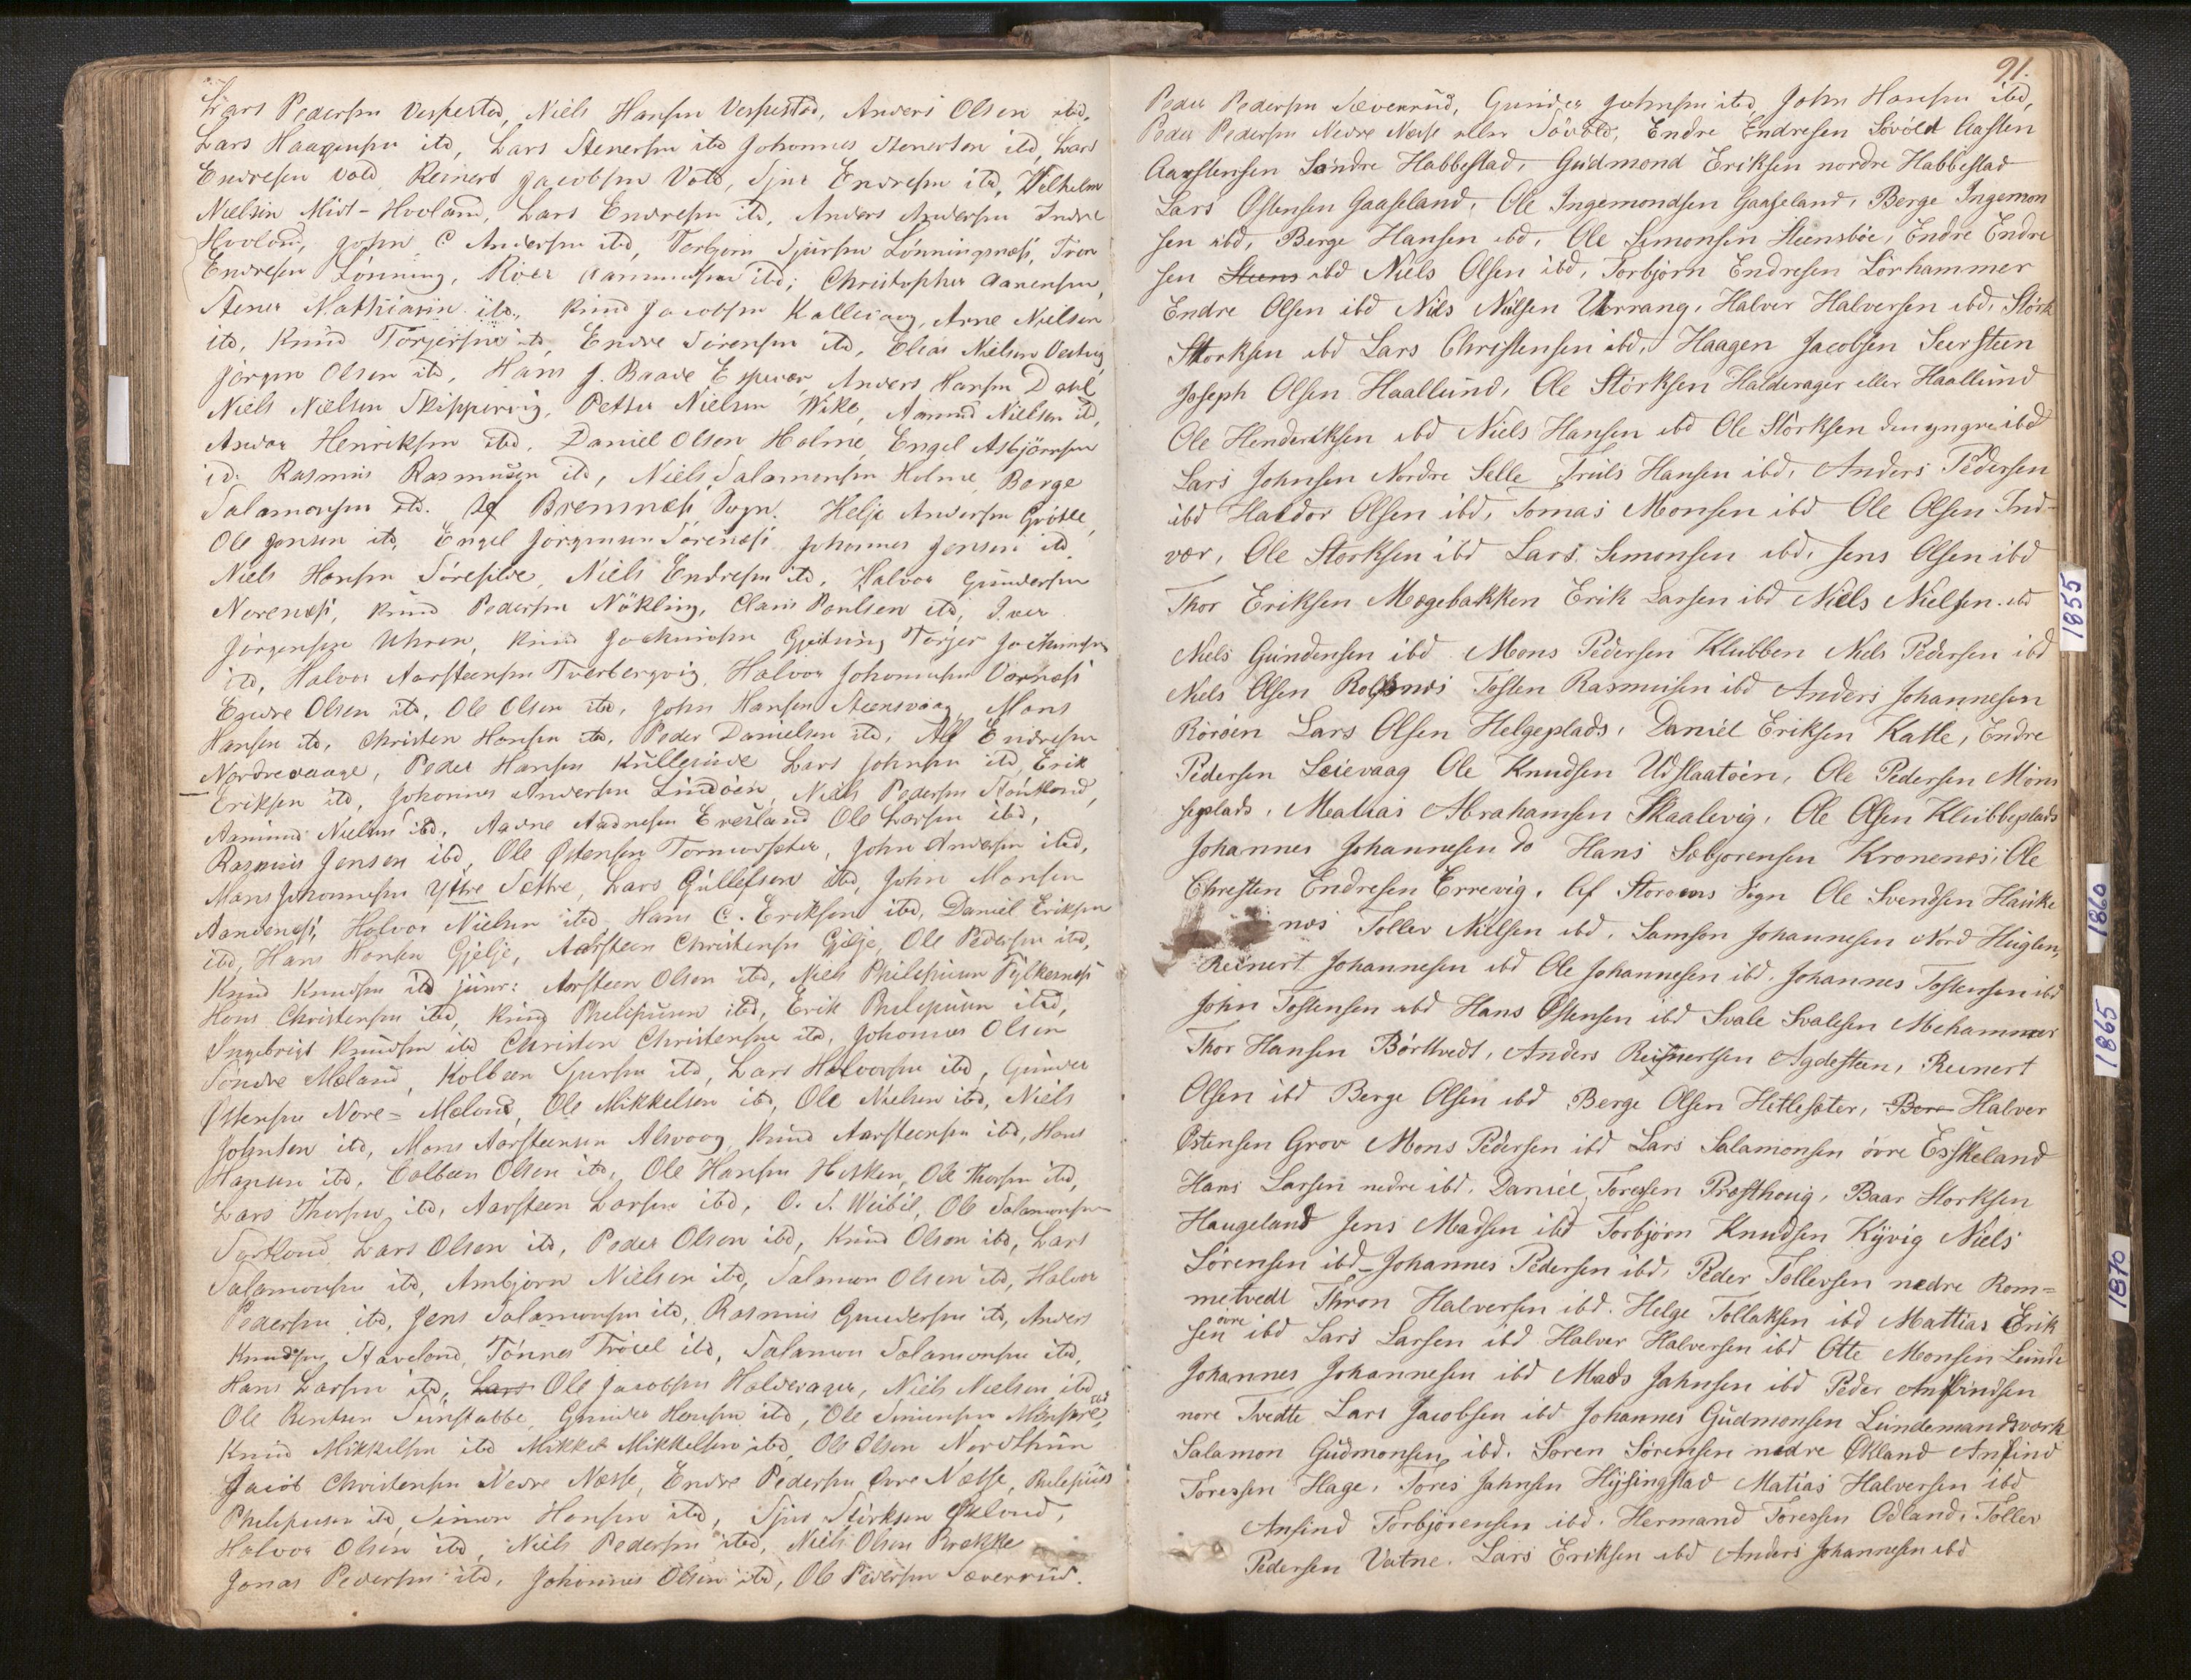 Lars Pedersen Vespestad, Niels Hansen Vespestad, Anders Olsen ibd,
Lars Haagensen ibd, Lars Stenersen ibd Johannes Stenersen ibd, Lars
Endresen Vold Reinert Jacobsen Vold, Sjur Endresen ibd, Wilhelm
Nielsen Midt-Hovland, Lars Endresen ibd, Anders Andersen Indre
Hovland, John C Andersen ibd, Torbjørn Sjursen Lønningsnæs,
Endresen Lønning, ibd; Christopher Aanensen,
Stener Mathiasen ibd, Knud Jacobsen Kallevaag, Arne Nielsen
ibd, Knud Torjersen ibd, Endre Sørensen ibd, Elias Nielsen
Jørgen Olsen ibd, Hans J. Baade Espevær Anders Hansen Dahl
Niels Nielsen Skippervig, Petter Nielsen Wike, Aamund Nielsen ibd,
Henriksen ibd, Daniel Olsen Holme, Engel Asbjørnsen
id. Rasmus Rasmusen ibd, Niels Salamonsen Holme, Børge
Salamonsen ibd. Af Bremnæs Sogn. Helje Andersen Grøtle,
Ole Jensen ibd, Engel Jørgensen Sørenæs Johannes Jensen ibd,
Niels Hansen Sørefilde, Niels Endresen ibd, Halvor Gundersen
Norenæs, Knud Pedersen Nøkling, Claus Poulsen ibd, Iver
Jørgensen Uhren, Knud Jochumsen Torjer Jochumsen
ibd, Halvor Aarsteensen Tverbergvig, Halvor Johannesen Vornæs
Endre Olsen ibd, Ole Olsen ibd, John Hansen Steensvaag, Mons
Hansen ibd, Christen Hansen ibd, Peder Danielsen ibd, Alf Endresen
Nordrevaage, Peder Hansen Kulleseide Lars Johnsen ibd, Erik
Eriksen ibd, Johannes Andersen Lindøen, Niels Pedersen Stoutland,
Aamund Nielsen ibd, Aadne Aadnesen Eresland Ole Larsen ibd,
Rasmus Jensen ibd, Ole Østensen Tornesæter, John Andersen ibd,
Mons Johannesen Yttre Sættre, Lars Gullefsen ibd, John Monsen
Aanænæs, Halvor Nielsen ibd Hans C. Eriksen ibd, Daniel Eriksen
ibd, Hans Hansen Gjelje, Aarsteen Christensen Gjelje, Ole Pedersen ibd,
Knud Knudsen ibd junr: Aarsteen Olsen ibd, Niels Philipusen Fylkesnæs
Hans Christensen ibd, Knud Philipusen ibd, Erik Philipusen ibd,
Ingebrigt Knudsen ibd Christen Christensen ibd, Johannes Olsen
Søndre Mæland, Kolbeen Sjursen ibd, Lars Halvorsen ibd, Gunder
Østensen Nore-Mæland, Ole Mikkelsen ibd, Ole Nielsen ibd, Niels
Johnsen ibd, Mons Aarsteensen Alsvaag, Knud Aarsteensen ibd, Hans
Hansen ibd, Colbeen Olsen ibd, Ole Hansen Hisken, Ole Thorsen ibd,
Lars Thorsen ibd, Aarsteen Larsen ibd, O. S. Weibel, Ole Salamonsen
Sortland, Lars Olsen ibd, Peder Olsen ibd, Knud Olsen ibd, Lars
Salamonsen ibd, Ambjørn Nielsen ibd, Salamon Olsen ibd, Halvor
Pedersen ibd, Jens Salamonsen ibd, Rasmus Gundersen ibd, Anders
Knudsen Staveland, Tønnes Trøiel ibd, Salamon Salamonsen ibd,
Hans Larsen ibd, Lars Ole Jacobsen Halderager, Niels Nielsen ibd
Ole Bentsen Sunstabbe, Gunder Hansen ibd, Ole Simensen ibd
Knud Mikkelsen ibd Mikkel Mikkelsen ibd, Ole Olsen Nordthun
Jacob Christensen Nedre Næsse, Endre Pedersen Øvre Næsse, Philipus
Philipusen ibd, Simon Hansen ibd, Sjur Størksen Økland,
Halvor Olsen ibd, Niels Pedersen ibd, Niels Olsen Brække
Jonas Pedersen ibd, Johannes Olsen ibd, Ole Pedersen Sæverud.
91.
Peder Pedersen Sæverud, Gunder Johnsen ibd, John Hansen ibd,
Peder Pedersen Nedre Næsse eller Søvold, Endre Endresen Søvold Aasten
Aarstensen Søndre Habbestad, Gudmond Eriksen nordre Habbestad
Lars Ostensen Gaaseland, Ole Ingemondsen Gaaseland, Berge Ingemon
sen ibd, Berge Hansen ibd, Ole Simonsen Steensbøe, Endre Endre
sen Steens ibd Niels Olsen ibd, Torbjørn Endresen Lørhammer
Endre Olsen ibd Nils Nilsen Urrang, Halver Halversen ibd, Størk
Størksen ibd Lars Christensen ibd, Haagen Jacobsen Seersteen
Joseph Olsen Haallund, Ole Størksen Halderager eller Haallund
Ole Henderiksen ibd Niels Hansen ibd Ole Størksen den yngre ibd
Lars Johnsen Nordre Selle Truls Hansen ibd, Anders Pedersen
ibd Haldor Olsen ibd, Tomas Monsen ibd Ole Olsen Ind-
vær, Ole Størksen ibd Lars Simonsen ibd, Jens Olsen ibd
Thor Eriksen Møgebakken Erik Larsen ibd Niels Nielsen ibd
Niels Gundersen ibd Mons Pedersen Klubben Niels Pedersen ibd
Niels Olsen Rolfsnes Tosten Rasmusen ibd Anders Johannesen
Rørøen Lars Olsen Helgeplads, Daniel Eriksen Katle, Endre
Pedersen Leievaag Ole Knudsen Udslaatøen, Ole Pedersen Møns
seplads, Matias Abrahamsen Skaalevig, Ole Olsen Klubbeplads
Johannes Johannesen do Hans Sebjørensen Kronenes, Ole
Christen Endresen Errevig. Af Storøens Sogn Ole Svendsen Hauke
nes Tollev Nilsen ibd, Samson Johannesen Nord Huglen,
Reinert Johannesen ibd Ole Johannesen ibd, Johannes Tostensen ibd
John Tostensen ibd Hans Østensen ibd Svale Svalesen Mehammer
Thor Hansen Børtvedt, Anders Reinertsen Agdesteen, Reinert
Olsen ibd Berge Olsen ibd Berge Olsen Hetlesæter, Bere Halver
Østensen Grov Mons Pedersen ibd Lars Salamonsen øvre Esskeland
Hans Larsen nedre ibd, Daniel Toresen Præsthoug, Baar Størksen
Haugeland Jens Madsen ibd Torbjørn Knudsen Kyvig Niels
Sørensen ibd Johannes Pedersen ibd, Peder Tollevsen nedre Rom=
metvedt Thron Halversen ibd. Helge Tollaksen ibd Mattias Erik
sen øvre ibd Lars Larsen ibd Halver Halversen ibd Otte Monsen Lunde
Johannes Johannesen ibd Mads Jahnsen ibd Peder Anfindsen
nore Tvedte Lars Jacobsen ibd Johannes Gudmonsen Lundemandsværk
Salamon Gudmonsen ibd. Søren Sørensen nedre Økland Anfind
Toressen Hage, Tores Jahnsen Hysingstad Matias Halversen ibd
Anfind Torbjørensen ibd. Hermand Toressen Odland, Tollev
Pedersen Vatne. Lars Eriksen ibd Anders Johannesen ibd
1855
1860
1865
1870